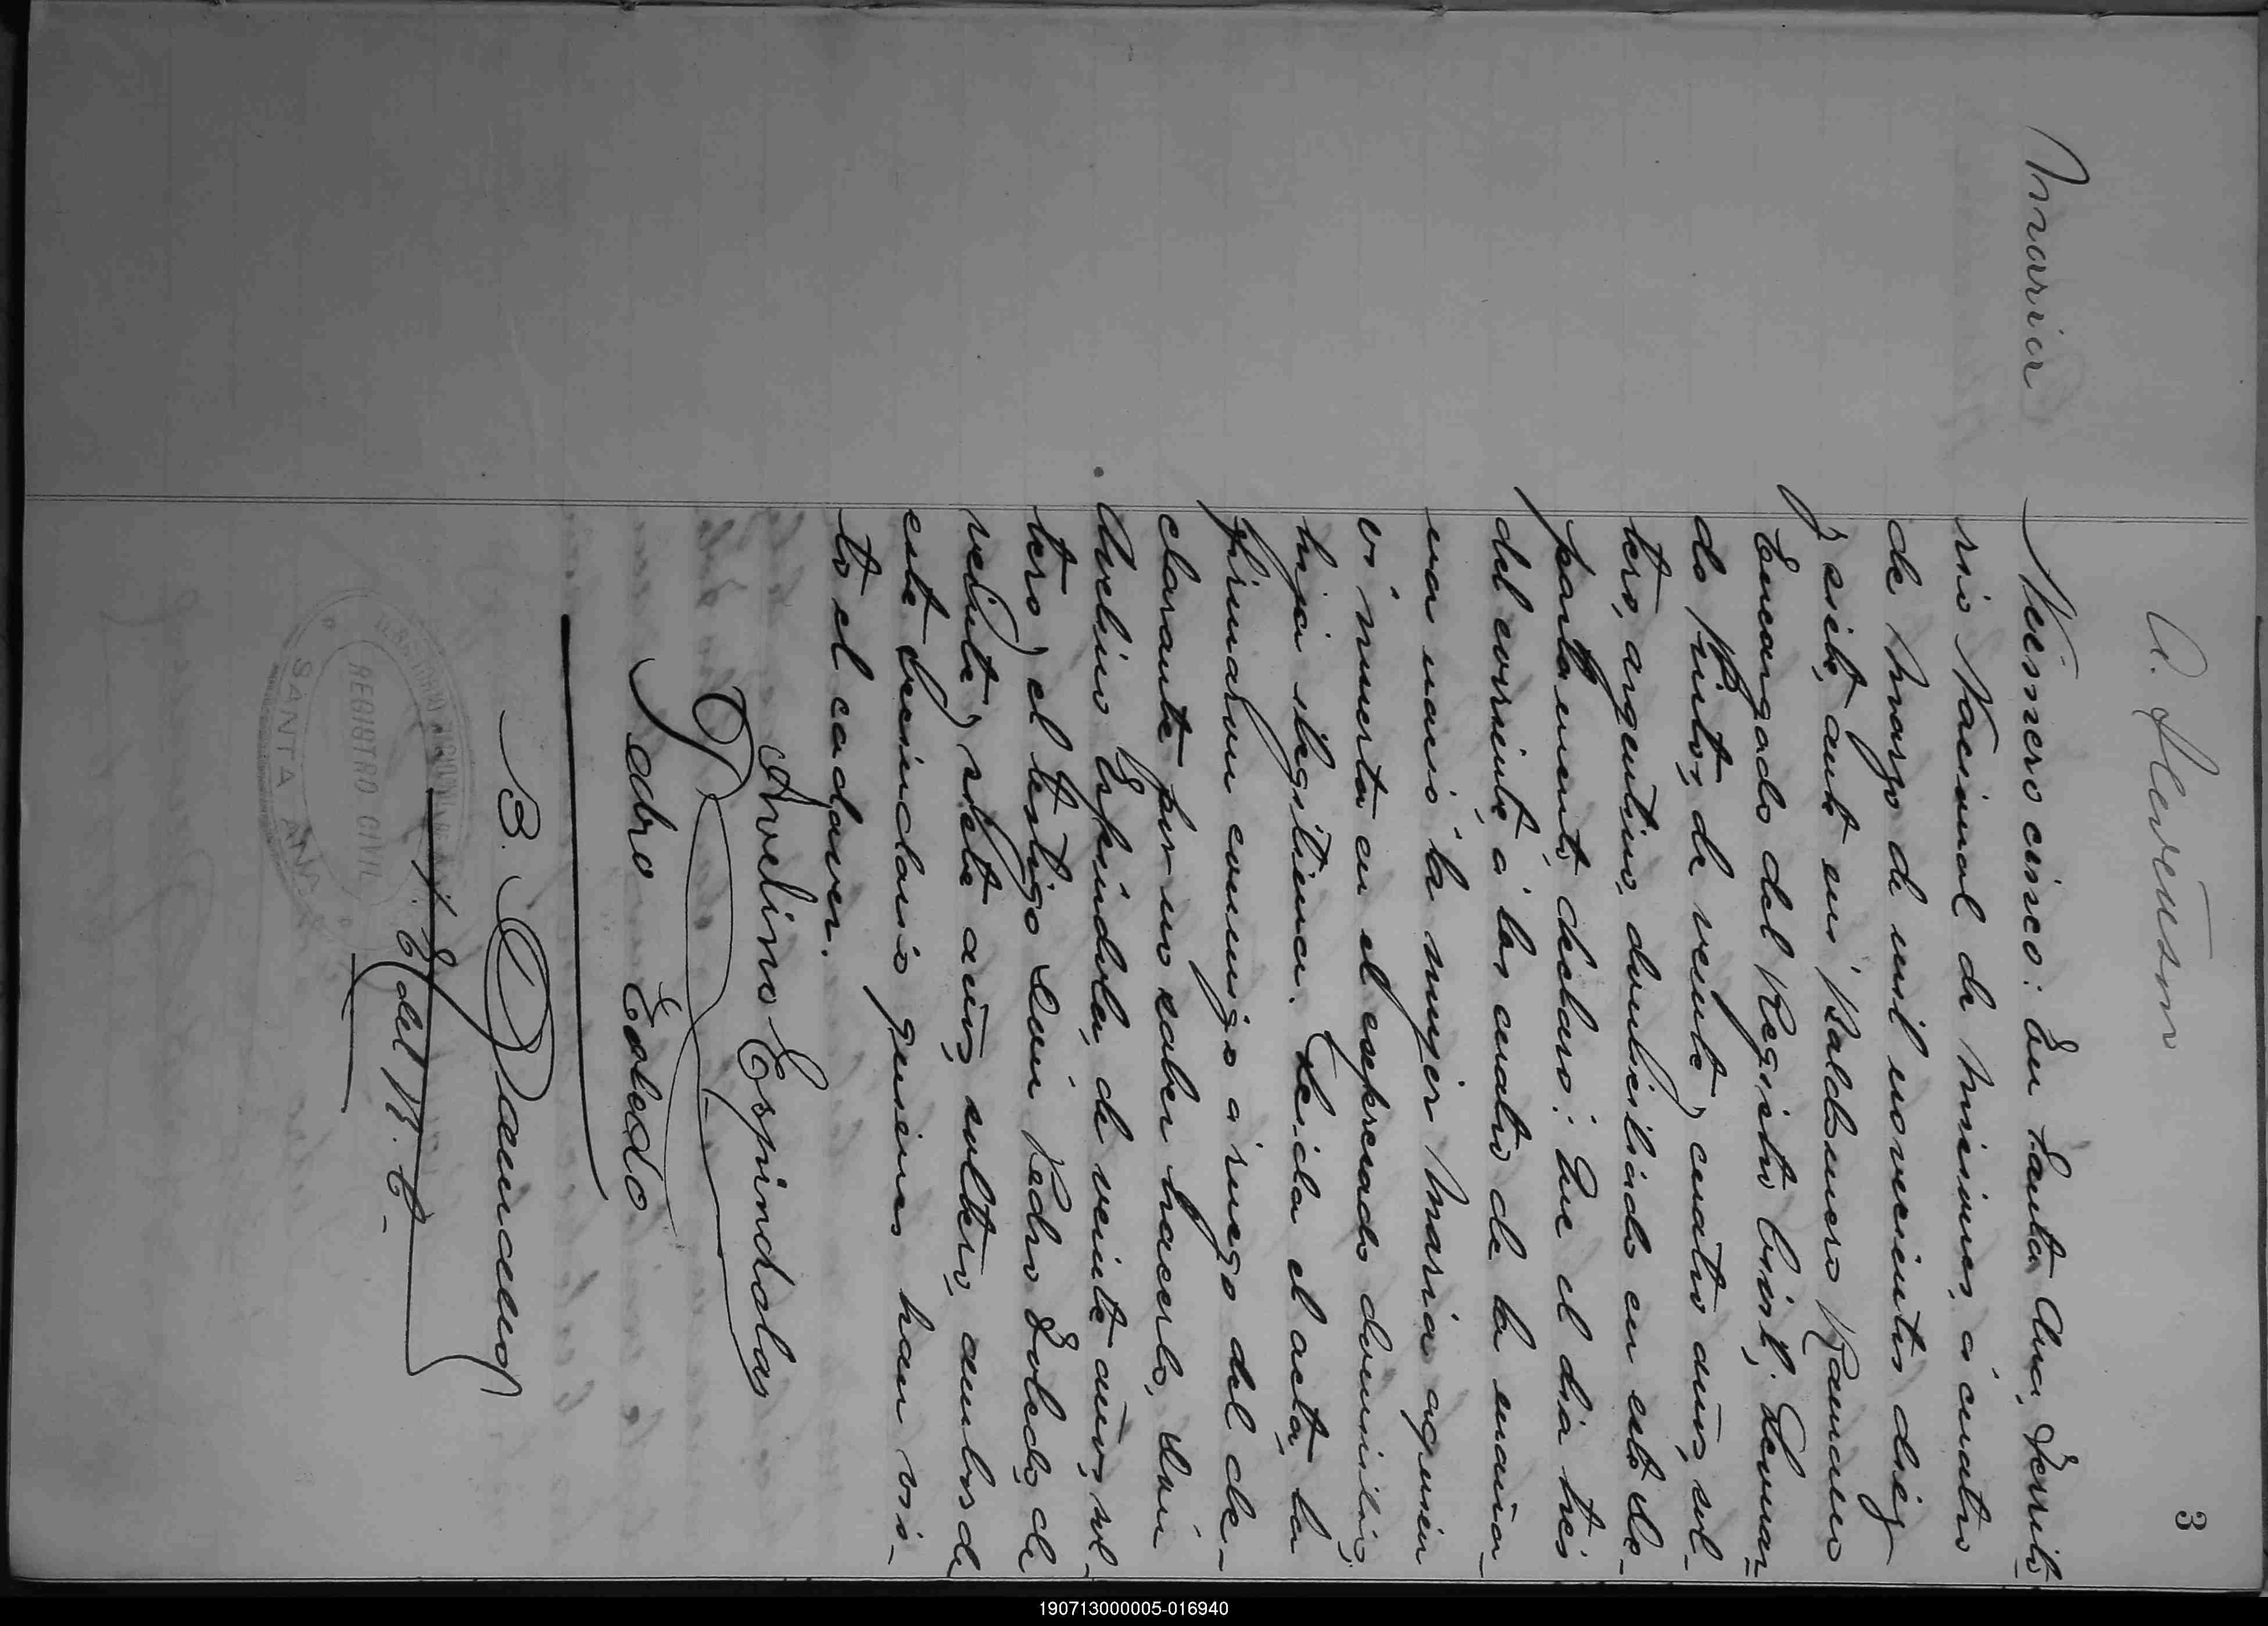 3
Maria
Número cinco: En Santa Ana, Territo-
rio Nacional de Misiones, á cuatro
de Marzo de mil novecientos diez
y siete, ante mi Baldomero
Encargado del Registro Civil; Leonar-
do Pinto, de veinte y cuatro años, sol-
tero, argentino, domiciliado en este De-
partamento, declaró: Que el día tres
del corriente, á las cuatro de la maña-
na la mujer Maria a quien
vi muerta en el expresado domicilio,
hija ilegitima. Leida el acta, la
firmaron conmigo a ruego del de-
clarante por no saber hacerlo, Don
Avelino Espindola, de veinte años, sol-
tero, y el testigo Don Pedro Toledo, de
veinte y siete años, soltero, ambos de
este vecindario quienes han vis-
to el cadaver.
Avelino Espindola
Pedro Toledo
B.
J. E. del R. C.
REGISTRO CIVIL
SANTA ANA
190713000005-016940